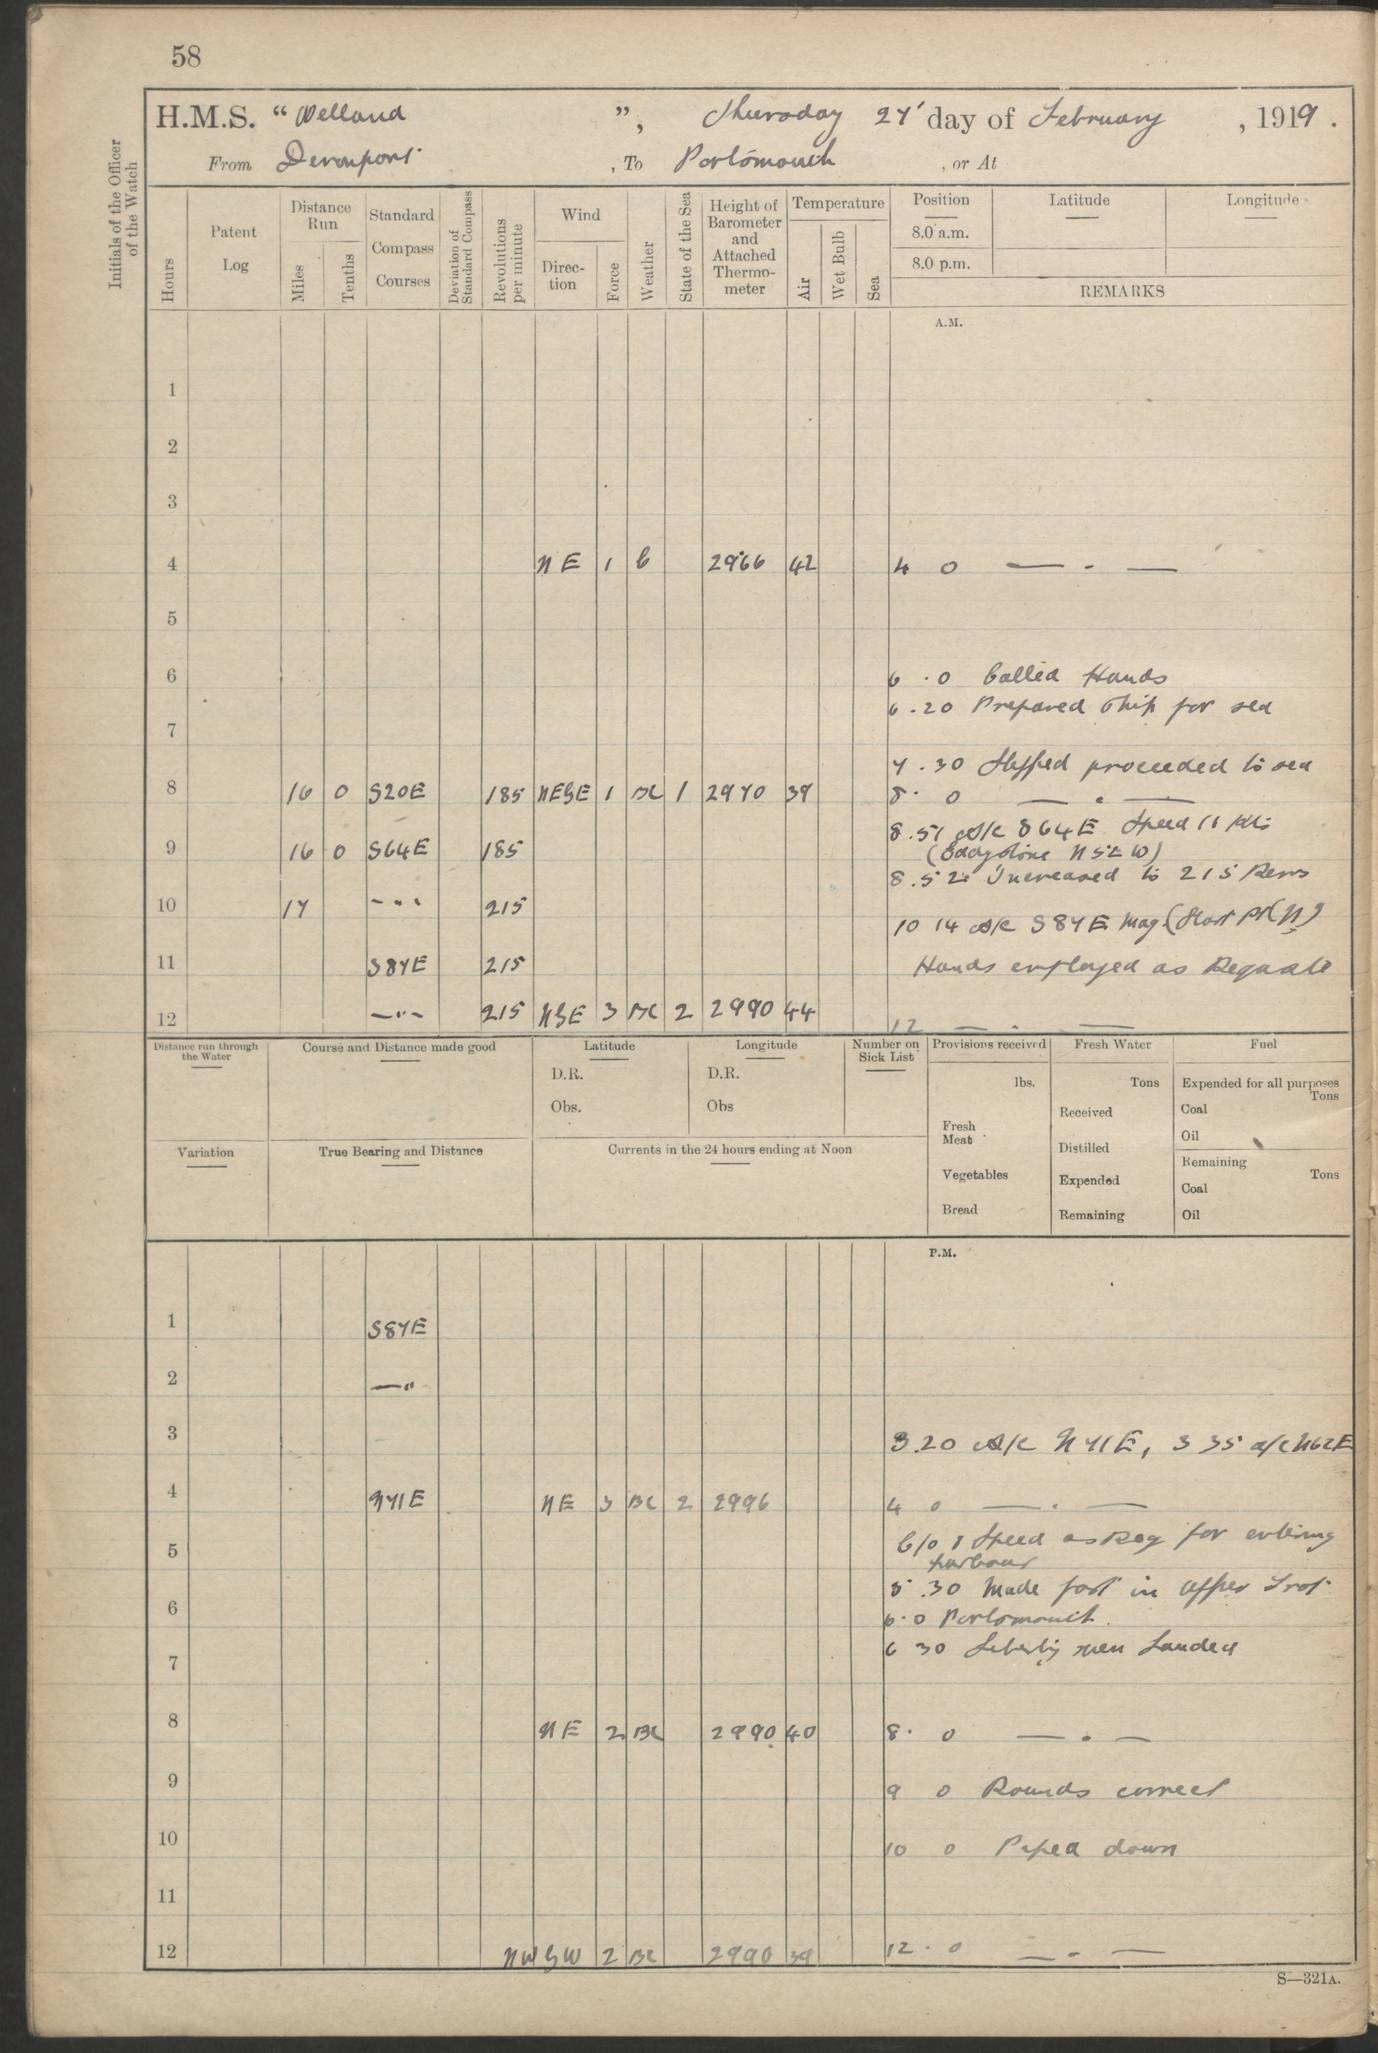 58
H.M.S. "Welland", Thursday 27' day of February, 1919.
From Devonport, To Portsmouth, or At
Initials of the Officer of the Watch
Hours
Patent Log
Distance Run
Miles
Tenths
Standard Compass Courses
Deviation of Standard Compass
Revolutions per minute
Wind
Direction
Force
Weather
State of the Sea
Height of Barometer and Attached Thermometer
Temperature
Air
Wet Bulb
Sea
Position
8.0 a.m.
8.0 p.m.
Latitude
Longitude
REMARKS
A.M.
1
2
3
4 NE 1 b 2966 42 4 0 — . —
5
6 6 . 0 Called Hands
6 . 20 Prepared Ship for sea
7
7 . 30 Slipped proceeded to sea
8 16 0 S20E 185 NEBE 1 BC 1 2970 39 8 . 0 — . —
8.51 A/c S64E Speed 11 Kts
9 16 0 S64E 185 (Eddystone N5E W)
8.52 Increased to 215 Revs
10 17 -"- 215 10 14 A/c S87E Mag. (Start Pt (N)
11 S87E 215 Hands employed as Requisite
12 -"- 215 NBE 3 BC 2 2990 44 12 — . —
Distance run through the Water
Course and Distance made good
Latitude
D.R.
Obs.
Longitude
D.R.
Obs
Number on Sick List
Provisions received
lbs.
Fresh Meat
Vegetables
Bread
Fresh Water
Tons
Received
Distilled
Expended
Remaining
Fuel
Expended for all purposes
Tons
Coal
Oil
Remaining
Tons
Coal
Oil
Variation
True Bearing and Distance
Currents in the 24 hours ending at Noon
P.M.
1 S87E
2 —"
3 3.20 A/c N71E, 3 35 a/c N62E
4 N71E NE 3 BC 2 2996 4 0 — . —
5 C/o & Speed as Req for entering
harbour
5 .30 Made fast in Upper Trot
6 6.0 Portsmouth.
6 30 Liberty men Landed
7
8 NE 2 BC 2990 40 8 . 0 — . —
9 9 0 Rounds correct
10 10 0 Piped down
11
12 NWBW 2 BC 2990 39 12 . 0 — . —
S—321A.